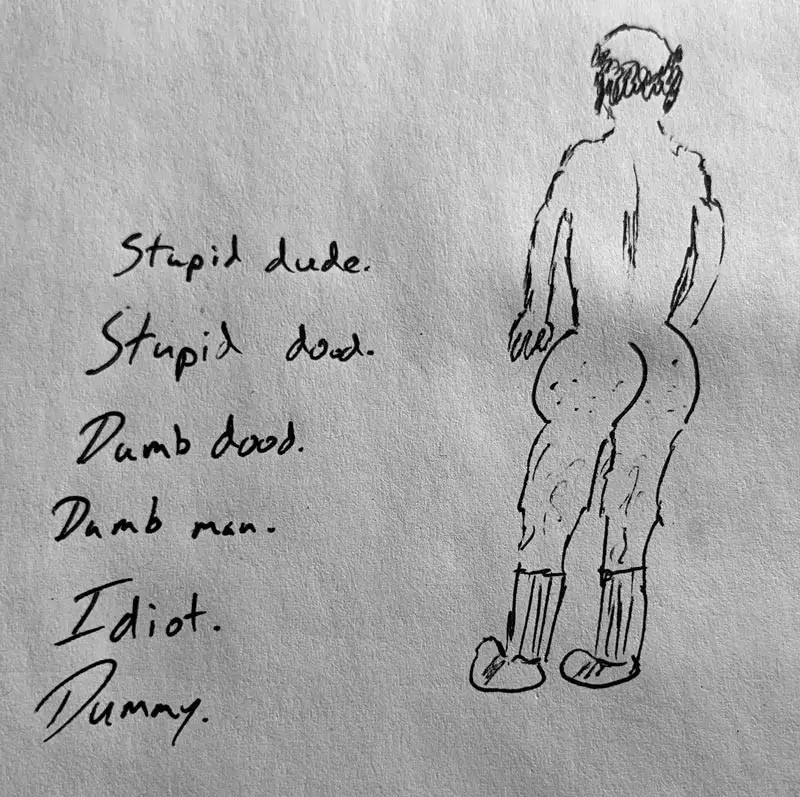 Stupid dude.
Stupid dood.
Dumb dood.
Dumb man.
Idiot.
Dummy.